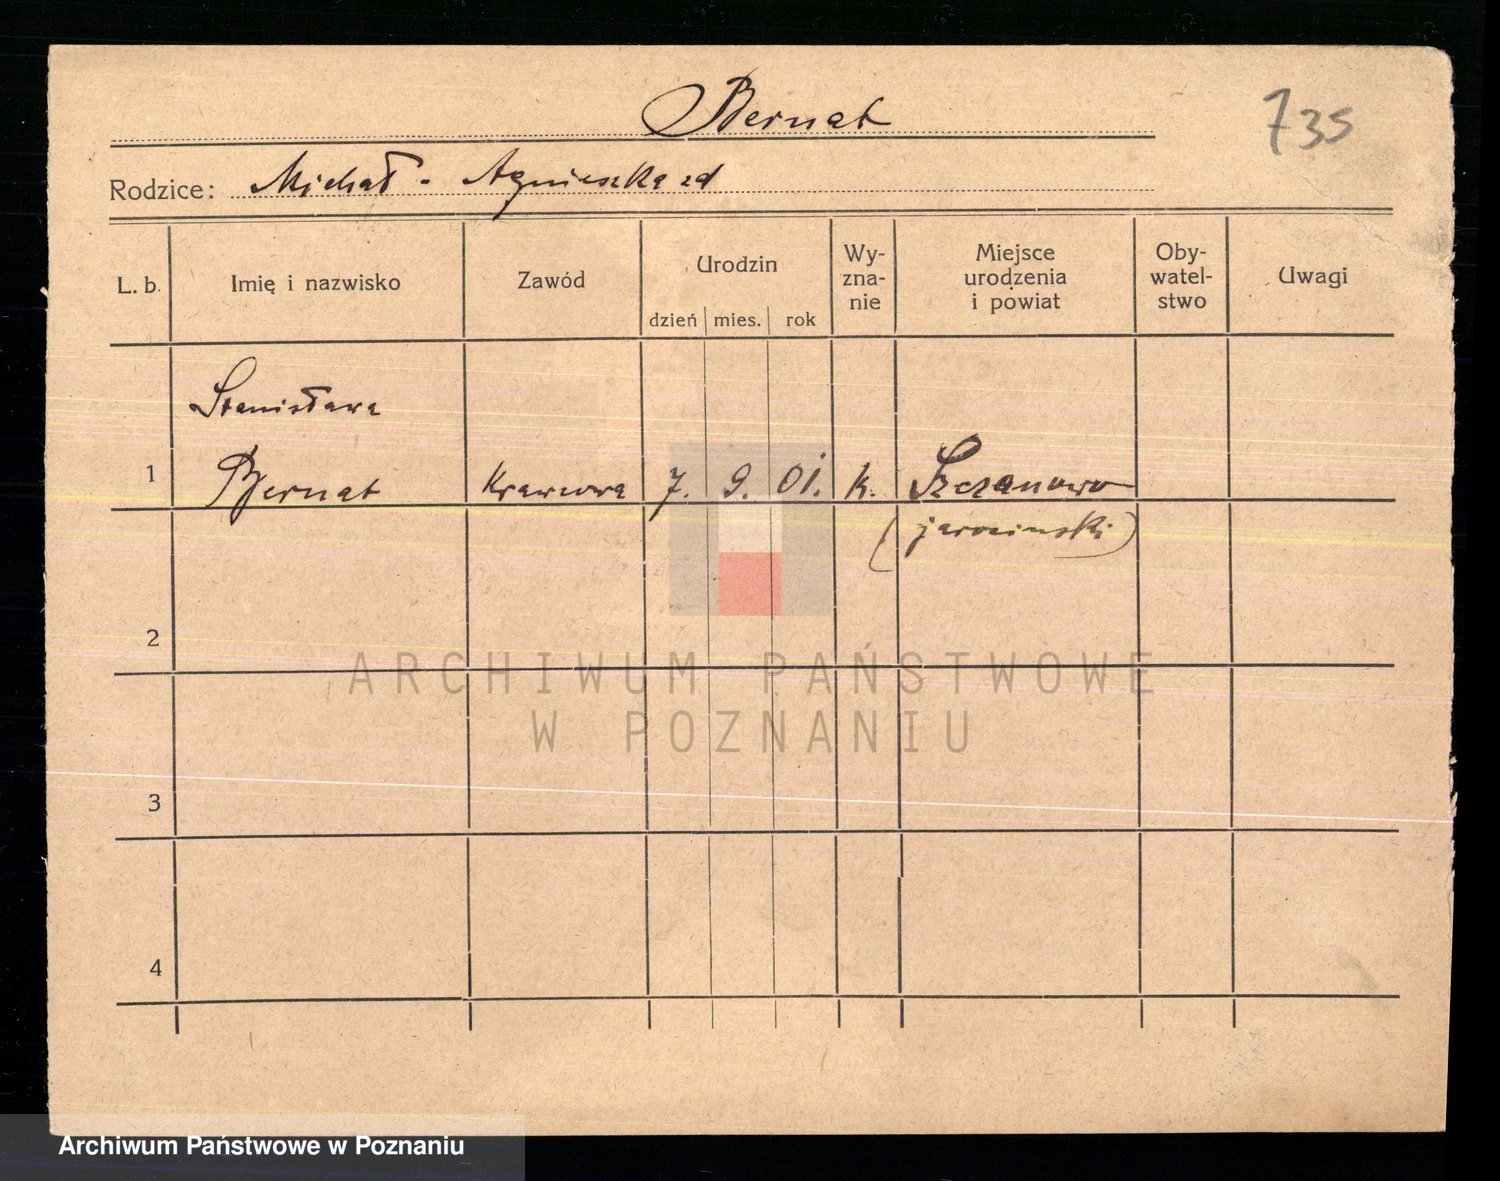 Bernat
735
Rodzice: Michał - Agnieszka zd
L. b.
Imię i nazwisko
Zawód
Urodzin
dzień mies. rok
Wy-
zna-
nie
Miejsce
urodzenia
i powiat
Oby-
watel-
stwo
Uwagi
Stanisława
1 Bernat krawcowa 7. 9. 01. k. Szczanowo
(jarociński)
2
3
4
ARCHIWUM PAŃSTWOWE
W POZNANIU
Archiwum Państwowe w Poznaniu